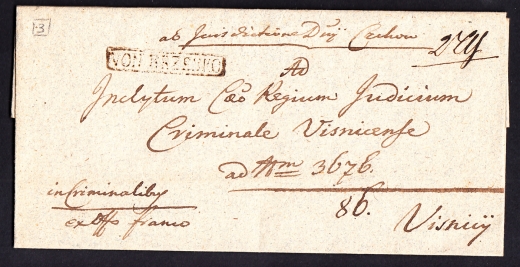 3
ab Jurisdictione Dnij Czchow
VON BRZESKO
Ad
Inclytum Cæo Regium Judicium
Criminale Visnicense
ad Nrm 3676.
in Criminalibus
86.
ex offo franco
Visnicij